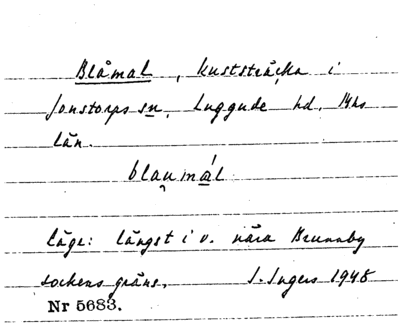 Blåmal, kuststräcka i
Jonstorps sn, Luggude hd, Mhs
län.
blau̯mál
läge: längst i v. nära Brunnby
sockens gräns. I. Ingers 1948
Nr 5683.